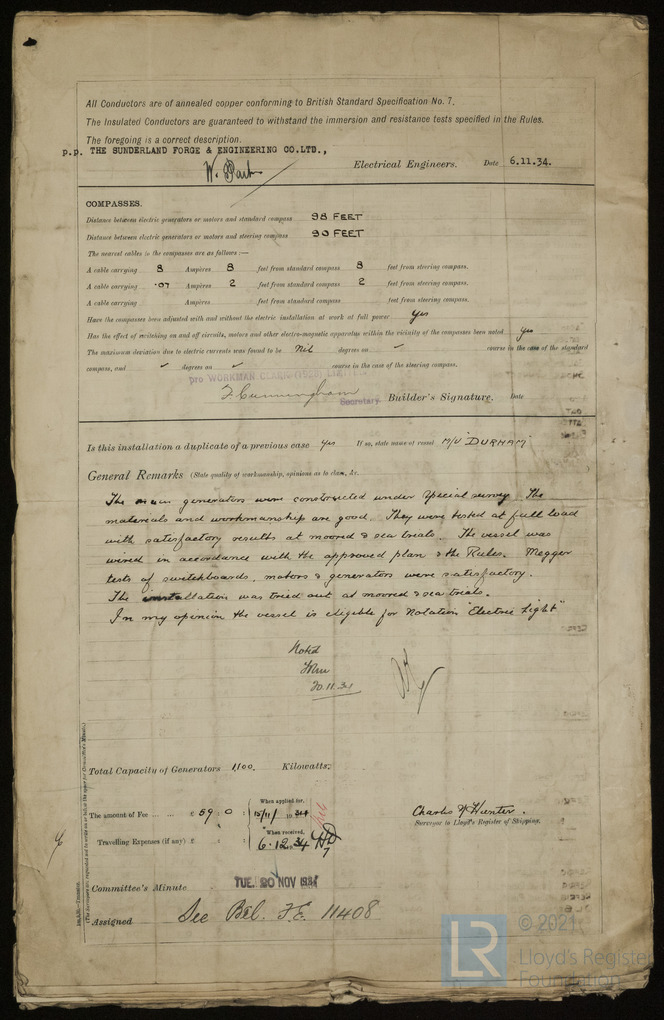 All Conductors are of annealed copper conforming to British Standard Specification No. 7.
The Insulated Conductors are guaranteed to withstand the immersion and resistance tests specified in the Rules.
The foregoing is a correct description.
p.p. THE SUNDERLAND FORGE & ENGINEERING CO.LTD.,
W. Electrical Engineers. Date 6.11.34.
COMPASSES.
Distance between electric generators or motors and standard compass 98 FEET
Distance between electric generators or motors and steering compass 90 FEET
The nearest cables to the compasses are as follows :—
A cable carrying 8 Ampères 8 feet from standard compass 8 feet from steering compass.
A cable carrying .07 Ampères 2 feet from standard compass 2 feet from steering compass.
A cable carrying Ampères feet from standard compass feet from steering compass.
Have the compasses been adjusted with and without the electric installation at work at full power Yes
Has the effect of switching on and off circuits, motors and other electro-magnetic apparatus within the vicinity of the compasses been noted Yes
The maximum deviation due to electric currents was found to be Nil degrees on ✓ course in the case of the standard
compass, and ✓ degrees on ✓ course in the case of the steering compass.
pro WORKMAN CLARK (1928) LIMITED
J Cunningham Secretary. Builder's Signature. Date
Is this installation a duplicate of a previous case Yes If so, state name of vessel M/V "DURHAM"
General Remarks (State quality of workmanship, opinions as to class, &c.
The main generators were constructed under Special survey. The
materials and workmanship are good. They were tested at full load
with satisfactory results at moored & sea trials. The vessel was
wired in accordance with the approved plan & the Rules. Megger
tests of switchboards, motors & generators were satisfactory.
The installation was tried out at moored & sea trials.
In my opinion the vessel is eligible for Notation "Electric Light"
Noted
20.11.34
Total Capacity of Generators 1,100. Kilowatts.
The amount of Fee ... ... £ 59 : 0 : When applied for, 15/11/ 1934
Travelling Expenses (if any) £ : : When received, 6.12.1934
Charles W Hunter.
Surveyor to Lloyd's Register of Shipping.
Committee's Minute TUE. 20 NOV 1934
Assigned See Bel. F.E. 11408
© 2021
LR
Lloyd's Register
Foundation